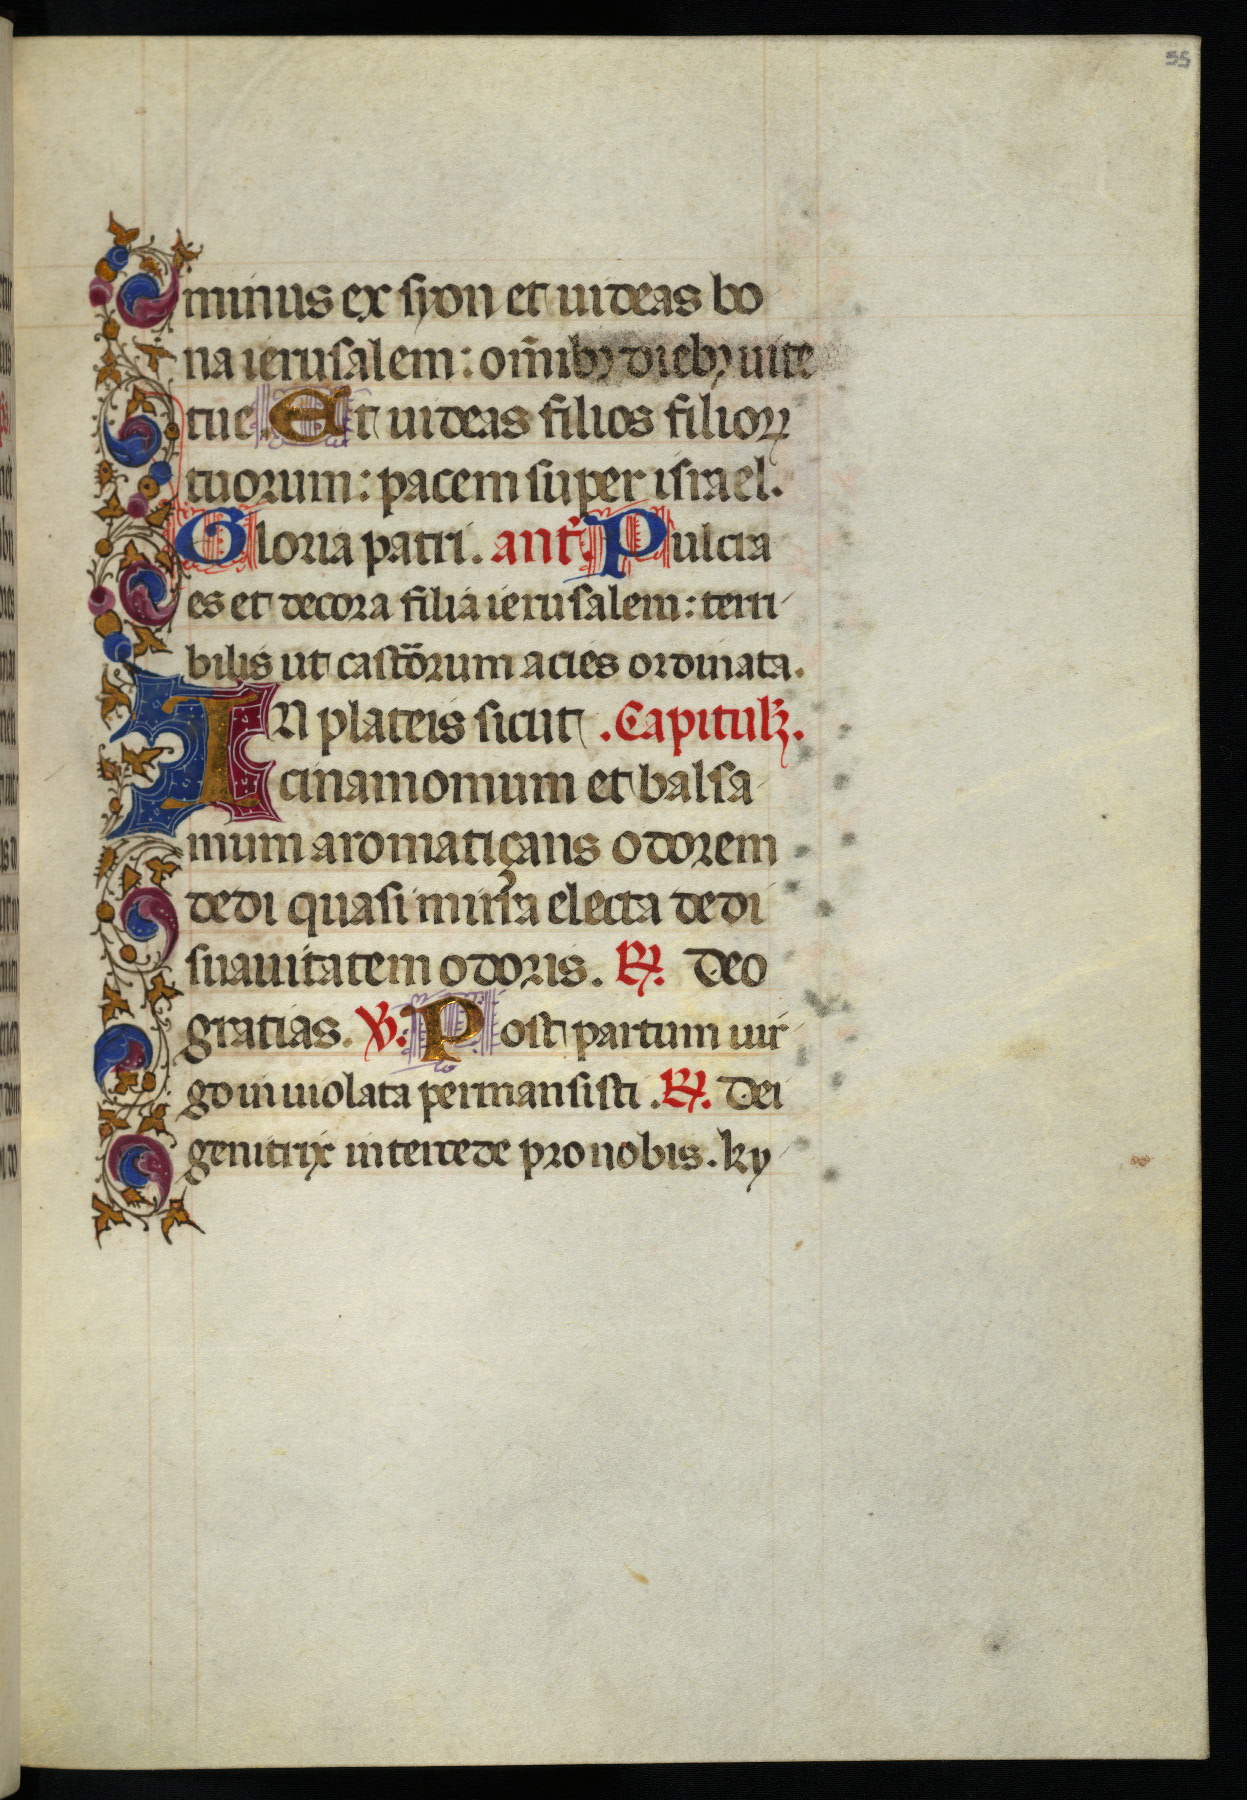 55
minus ex syon et uideas bo
na ierusalem: om̄ibꝫ diebꝫ uite
tue. Et uideas filios filioꝝ
tuorum: pacem super israel.
Gloria patri. ant̄. Pulcra
es et decora filia ierusalem: terri
bilis ut castōrum acies ordinata.
IN plateis sicut .Capitulꝫ.
cinamomum et balsa
mum aromatiçans odorem
dedi quasi mirra electa dedi
suauitatem odoris. ℟. Deo
gratias. ℣. Post partum uir
go inuiolata permansisti. ℟. Dei
genitrix intercede pro nobis. ky